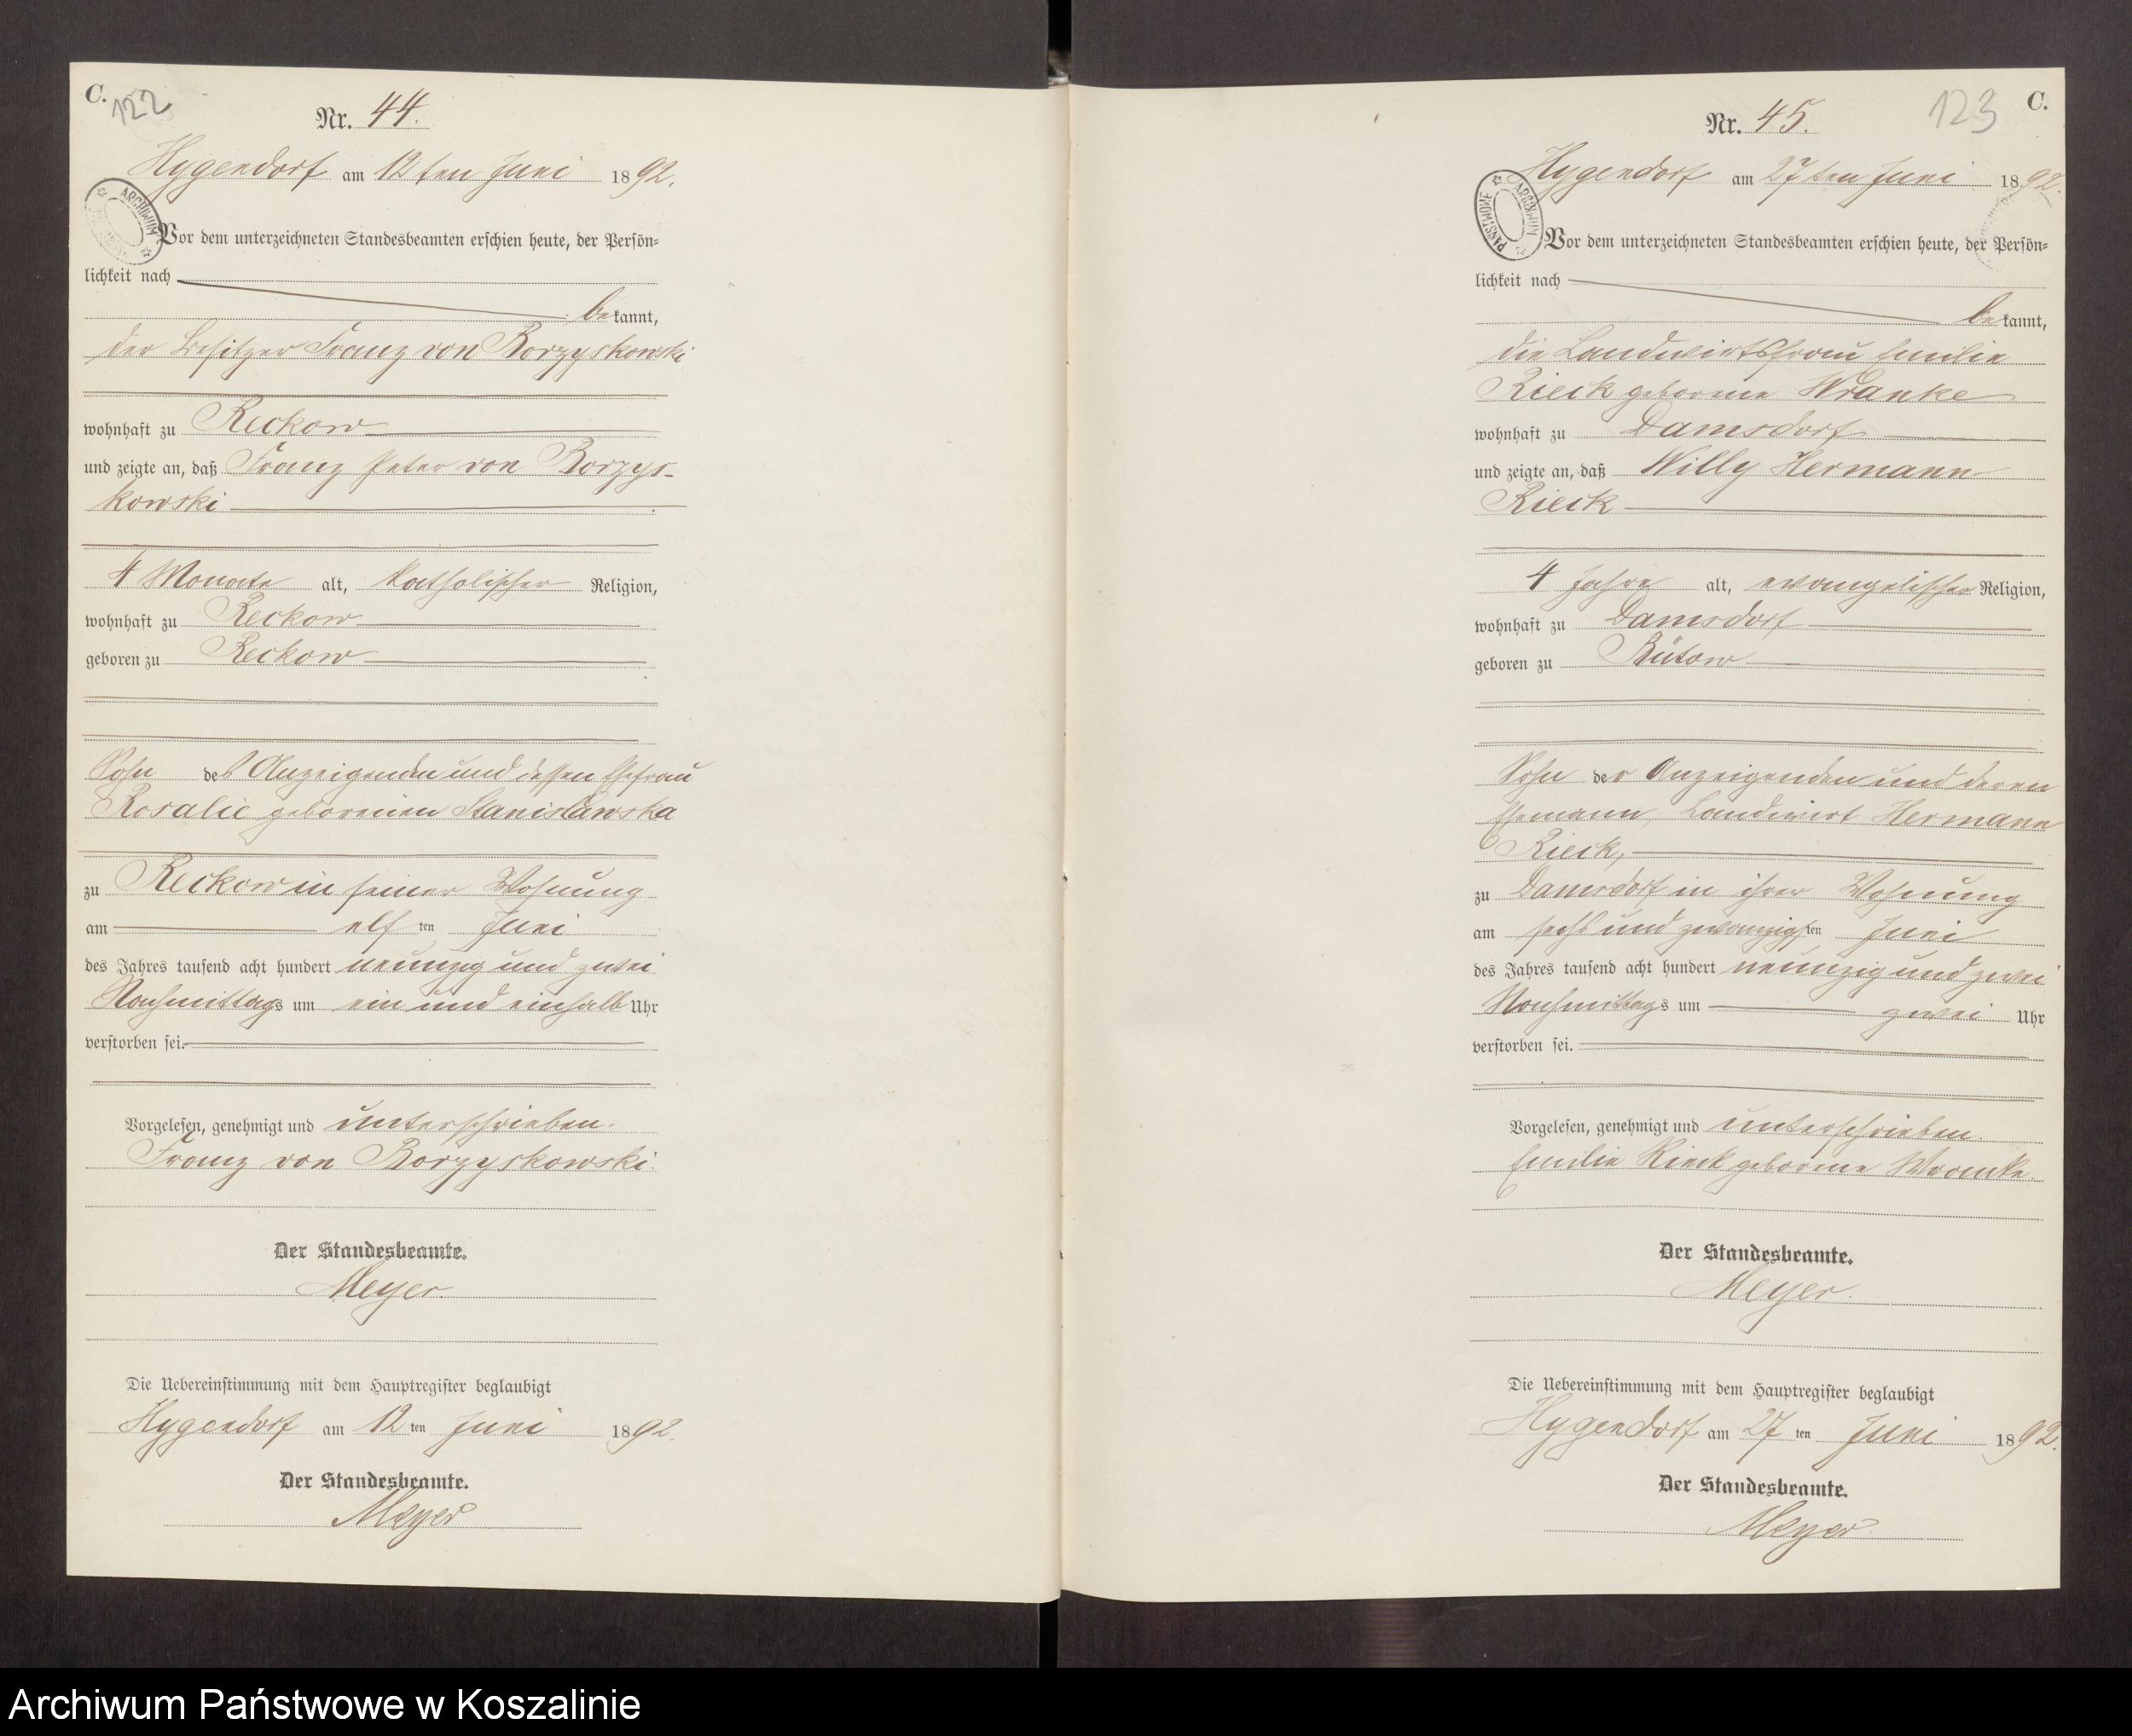 C.
122
Nr. 44.
Hygendorf am 12ten Juni 1892.
ARCHIWUM
Vor dem unterzeichneten Standesbeamten erschien heute, der Persön=
lichkeit nach
bekannt,
der Besitzer Franz von Borzyskowski
wohnhaft zu Reckow
und zeigte an, daß Franz Peter von Borzys-
kowski
4 Monate alt, katholischer Religion,
wohnhaft zu Reckow
geboren zu Reckow
Sohn des Anzeigenden und dessen Ehefrau
Rosalie geborenen Stanislawska
zu Reckow in seiner Wohnung
am elf ten Juni
des Jahres tausend acht hundert neunzig und zwei
Nachmittags um ein und einhalb Uhr
verstorben sei.
Vorgelesen, genehmigt und unterschrieben.
Franz von Borzyskowski.
Der Standesbeamte.
Meyer.
Die Uebereinstimmung mit dem Hauptregister beglaubigt
Hygendorf am 12 ten Juni 1892.
Der Standesbeamte.
Meyer
C.
123
Nr. 45.
Hygendorf am 27ten Juni 1892.
ARCHIWUM PAŃSTWOWE
Vor dem unterzeichneten Standesbeamten erschien heute, der Persön=
lichkeit nach
bekannt,
die Landwirtsfrau Emilie
Rieck geborene Wranke
wohnhaft zu Damsdorf
und zeigte an, daß Willy Hermann
Rieck
4 Jahre alt, evangelischer Religion,
wohnhaft zu Damsdorf
geboren zu Bütow
Sohn der Anzeigenden und deren
Ehemann, Landwirt Hermann
Rieck,
zu Damsdorf in ihrer Wohnung
am sechs und zwanzigsten Juni
des Jahres tausend acht hundert neunzig und zwei
Nachmittags um zwei Uhr
verstorben sei.
Vorgelesen, genehmigt und unterschrieben.
Emilie Rieck geborene Wranke.
Der Standesbeamte.
Meyer.
Die Uebereinstimmung mit dem Hauptregister beglaubigt
Hygendorf am 27 ten Juni 1892.
Der Standesbeamte.
Meyer.
Archiwum Państwowe w Koszalinie